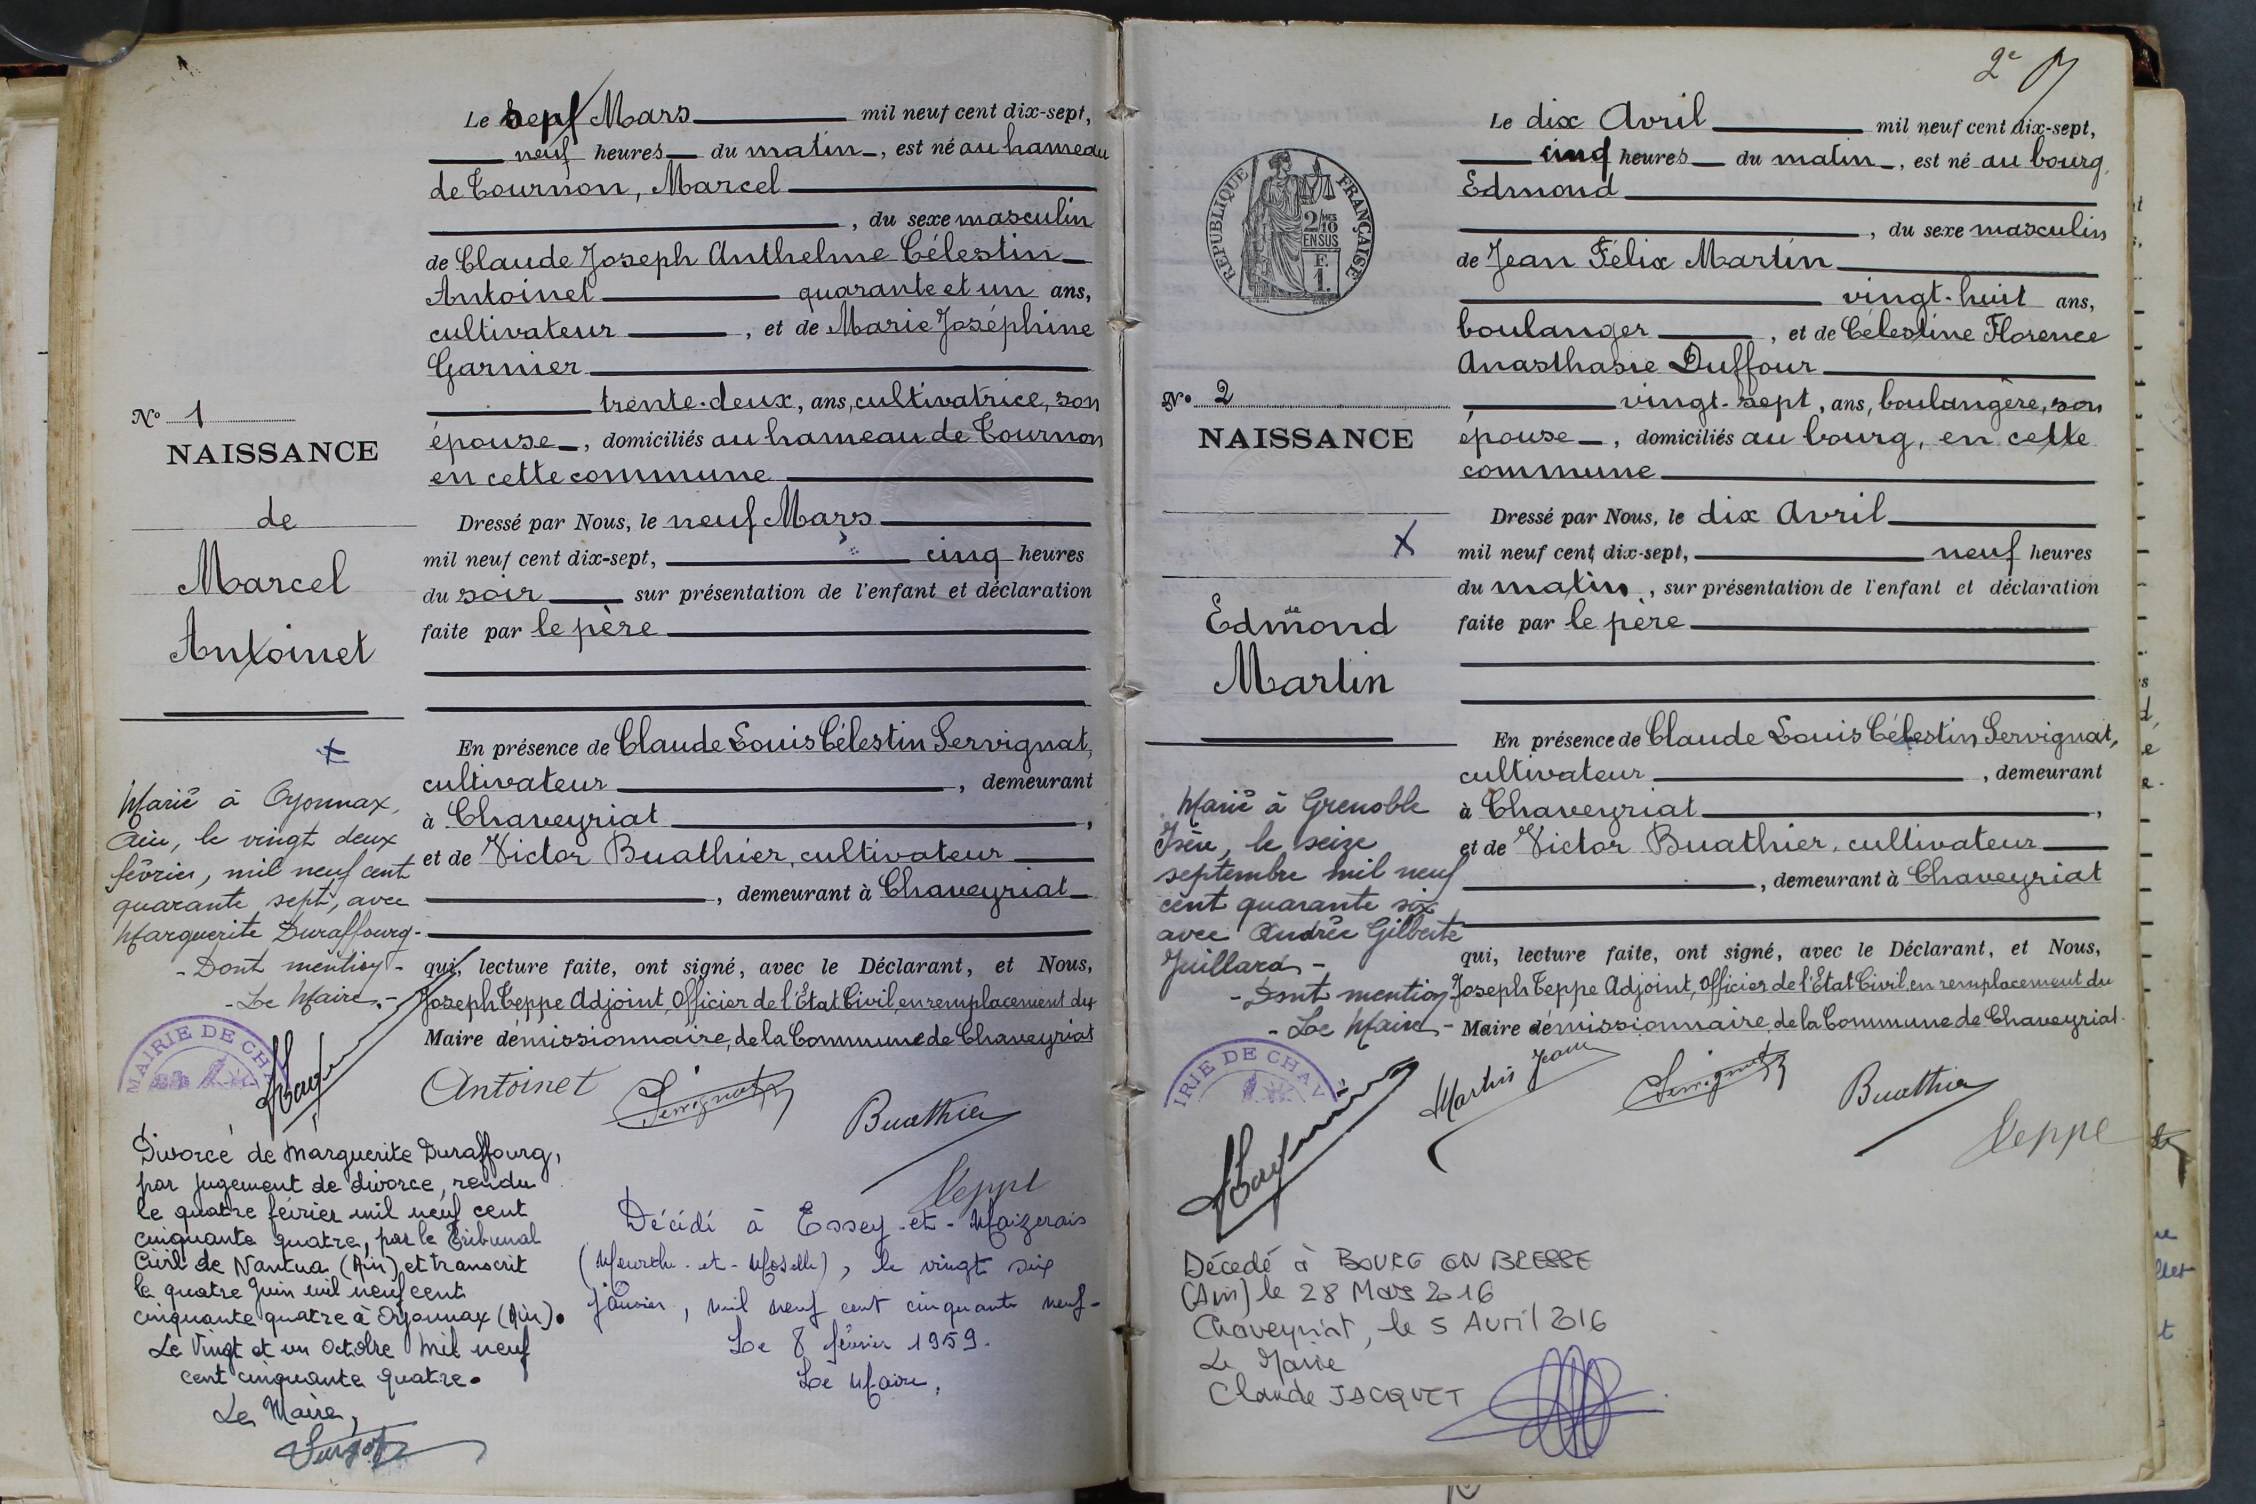 Le sept Mars mil neuf cent dix-sept,
neuf heures du matin, est né au hameau
de Tournon, Marcel
, du sexe masculin
de Claude Joseph Anthelme Célestin
Antoinet quarante et un ans,
cultivateur, et de Marie Joséphine
Garnier
trente-deux, ans, cultivatrice, son
épouse, domiciliés au hameau de Tournon
en cette commune
Dressé par Nous, le neuf Mars
mil neuf cent dix-sept, cinq heures
du soir sur présentation de l'enfant et déclaration
faite par le père
En présence de Claude Louis Célestin Servignat,
cultivateur, demeurant
à Chaveyriat,
et de Victor Buathier, cultivateur
, demeurant à Chaveyriat
qui, lecture faite, ont signé, avec le Déclarant, et Nous,
Joseph Teppe Adjoint, Officier de l'Etat Civil, en remplacement du
Maire démissionnaire, de la Commune de Chaveyriat
Antoinet Servignat
Buathier
Teppe
N° 1
NAISSANCE
de
Marcel
Antoinet
Marié à Oyonnax,
Ain, le vingt deux
février, mil neuf cent
quarante sept, avec
Marguerite Duraffourg-
- Dont mention -
- Le Maire. -
MAIRIE DE CHA
Divorcé de Marguerite Duraffourg,
par jugement de divorce, rendu
le quatre février mil neuf cent
cinquante quatre, par le Tribunal
Civil de Nantua (Ain) et transcrit
le quatre Juin mil neuf cent
cinquante quatre à Oyonnax (Ain).
Le Vingt et un Octobre mil neuf
cent cinquante quatre.
Le Maire,
Décédé à Essey-et-Maizerais
(Meurthe-et-Moselle), le vingt six
janvier, mil neuf cent cinquante neuf-
Le 8 février 1959.
Le Maire,
2e
Le dix Avril mil neuf cent dix-sept,
cinq heures du matin, est né au bourg
Edmond
, du sexe masculin
de Jean Félix Martin
vingt-huit ans,
boulanger, et de Célestine Florence
Anasthasie Duffour
vingt-sept, ans, boulangère, son
épouse, domiciliés au bourg, en cette
commune
Dressé par Nous, le dix Avril
mil neuf cent dix-sept, neuf heures
du matin, sur présentation de l'enfant et déclaration
faite par le père
En présence de Claude Louis Célestin Servignat,
cultivateur, demeurant
à Chaveyriat,
et de Victor Buathier, cultivateur
, demeurant à Chaveyriat
qui, lecture faite, ont signé, avec le Déclarant, et Nous,
Joseph Teppe Adjoint, Officier de l'Etat Civil, en remplacement du
Maire démissionnaire, de la Commune de Chaveyriat.
Martin Jean Servignat Buathier
Teppe
RÉPUBLIQUE FRANÇAISE
2/10
EN SUS
F.
1.
N° 2
NAISSANCE
de
Edmond
Martin
Marié à Grenoble
Isère, le seize
septembre mil neuf
cent quarante six
avec Andrée Gilberte
Juillard -
- Dont mention
- Le Maire -
IRIE DE CHAV
Décédé à BOURG EN BRESSE
(Ain) le 28 Mars 2016
Chaveyriat, le 5 Avril 2016
Le Maire
Claude JACQUET